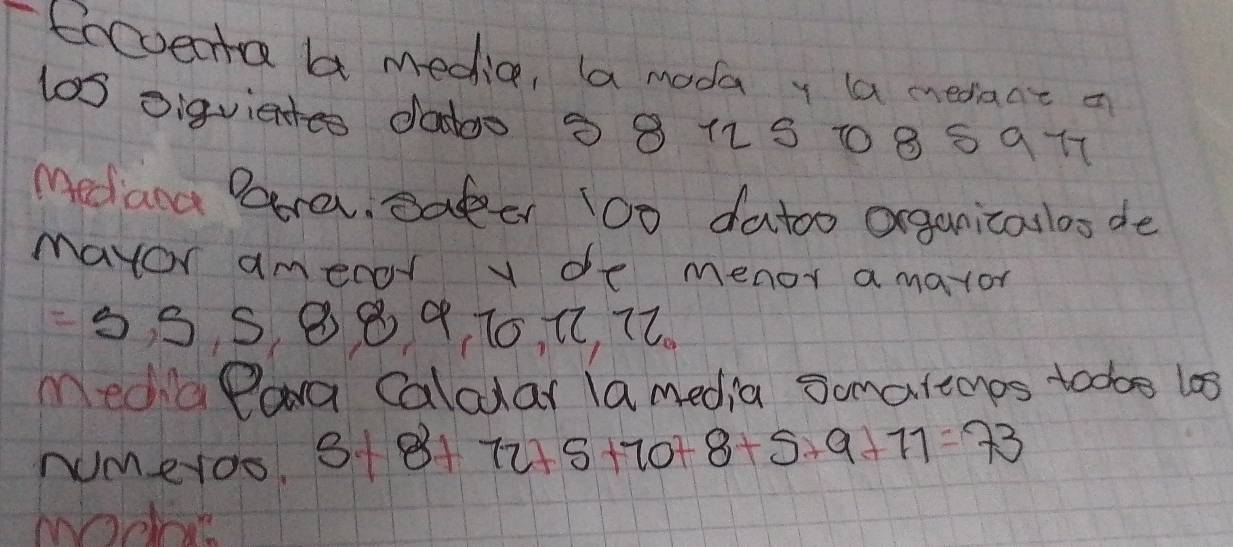 Encuentra la media, la moda y la mediana en
los siguientes datos 5 8 12 5 10 8 5 9 11
Mediana Para. saber los datos organizarlos de
mayor amenor y de menor a mayor
= 5, 5, 5, 8, 8, 9, 10, 12, 12.
Media Para Calcular la media sumaremos todos los
numeros. 5+8+12+5+10+8+5+9+11=73
moda: